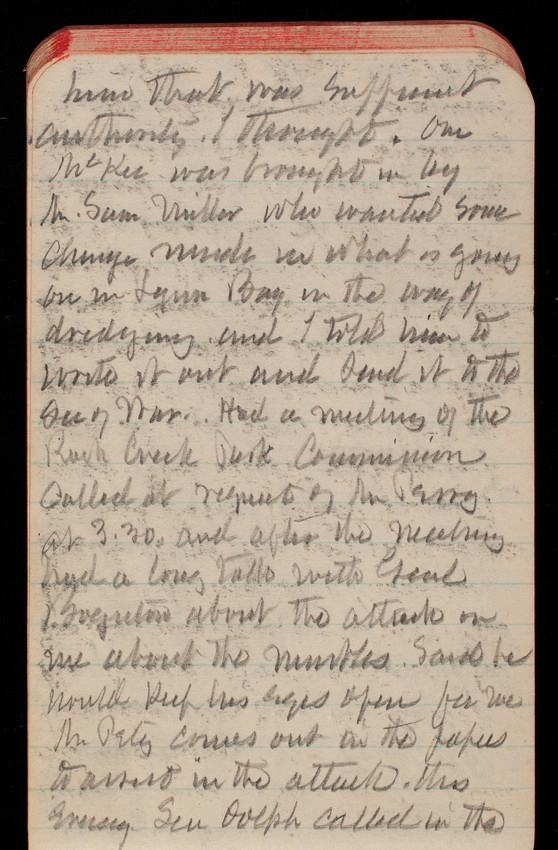 him that was sufficient
authority I thought. One
McKee was brought in by
Mr. Sam Miller who wanted some
change made in what is going
on in Lynn Bay in the way of
dredging and I told him to
write it out and send it to the
Sec of War. Had a meeting of the
Rock Creek Park Commission
Called at request of Mr Perry
at 3.30. and after the meeting
had a long talk with Genl
Boynton about the attack on
me about the Said he
would keep his eyes open for me
Mr comes out in the papers
to assist in the attack. this
Evening Sen Dolph called in the